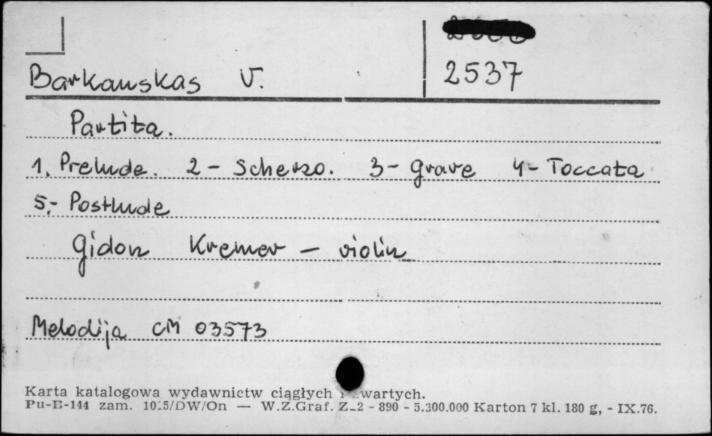 Barkauskas V.
2537
Partita.
1. Prelude. 2- Scherzo. 3- grave 4- Toccata
5.- Postlude
Gidon Kremer – violin
Melodija CM 03573
Karta katalogowa wydawnictw ciągłych i zwartych.
Pu-B-144 zam. 1015/DW/On — W.Z.Graf. Z-2 - 890 - 5.300.000 Karton 7 kl. 180 g, - IX.76.